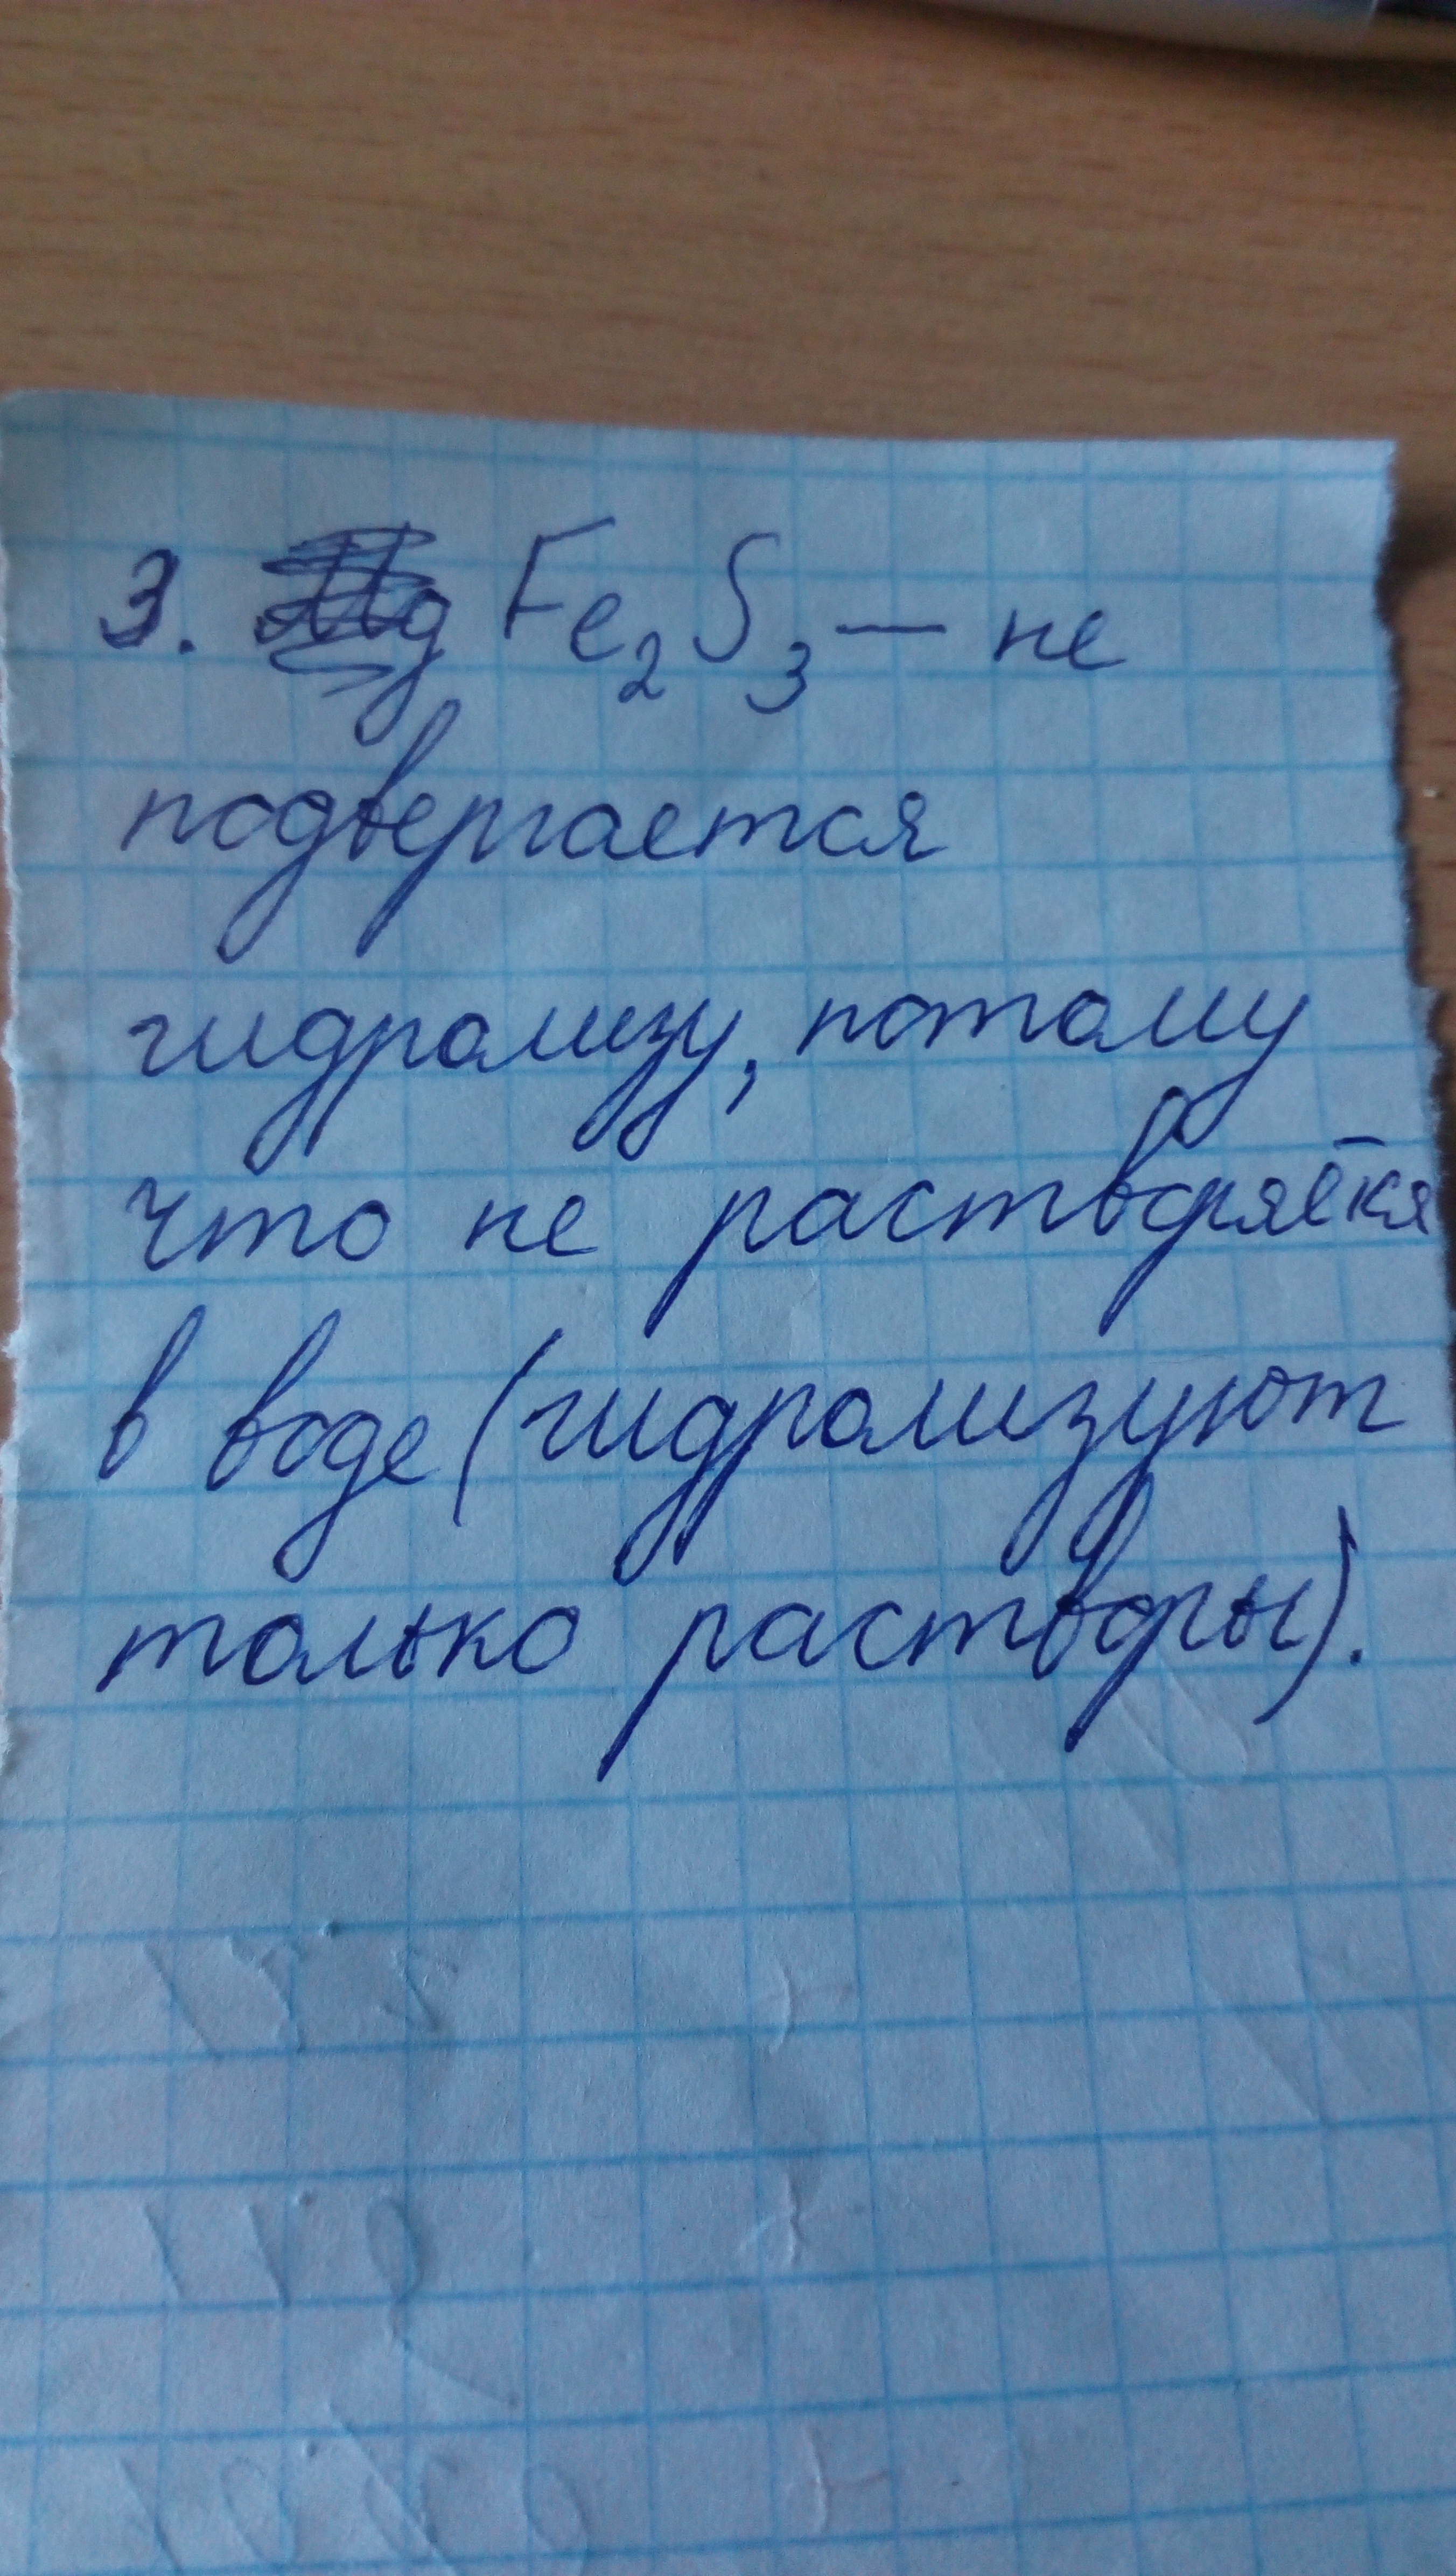 3. Fe₂S₃ — не
подвергается
гидролизу, потому
что не растворяется
в воде (гидролизуют
только растворы).